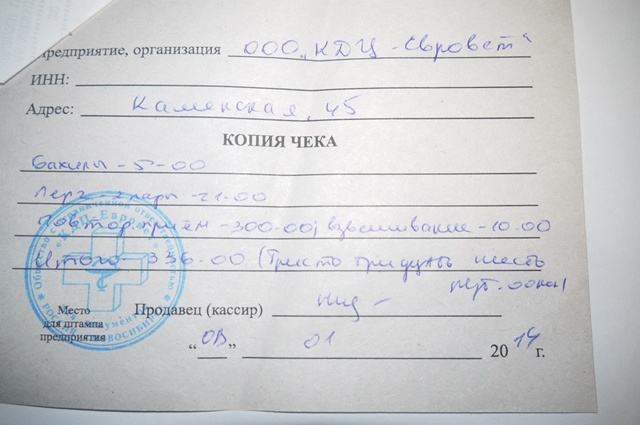 предприятие, организация ООО „КДЦ - Евровет“
ИНН:
Адрес: Каменская, 45
КОПИЯ ЧЕКА
бахилы - 5-00
пары - 21.00
приём - 300.00; взвешивание - 10.00
Итого - 336.00 (Триста тридцать шесть
руб. 00коп)
Место
для штампа
предприятия
Продавец (кассир)
“08” 01 2014 г.